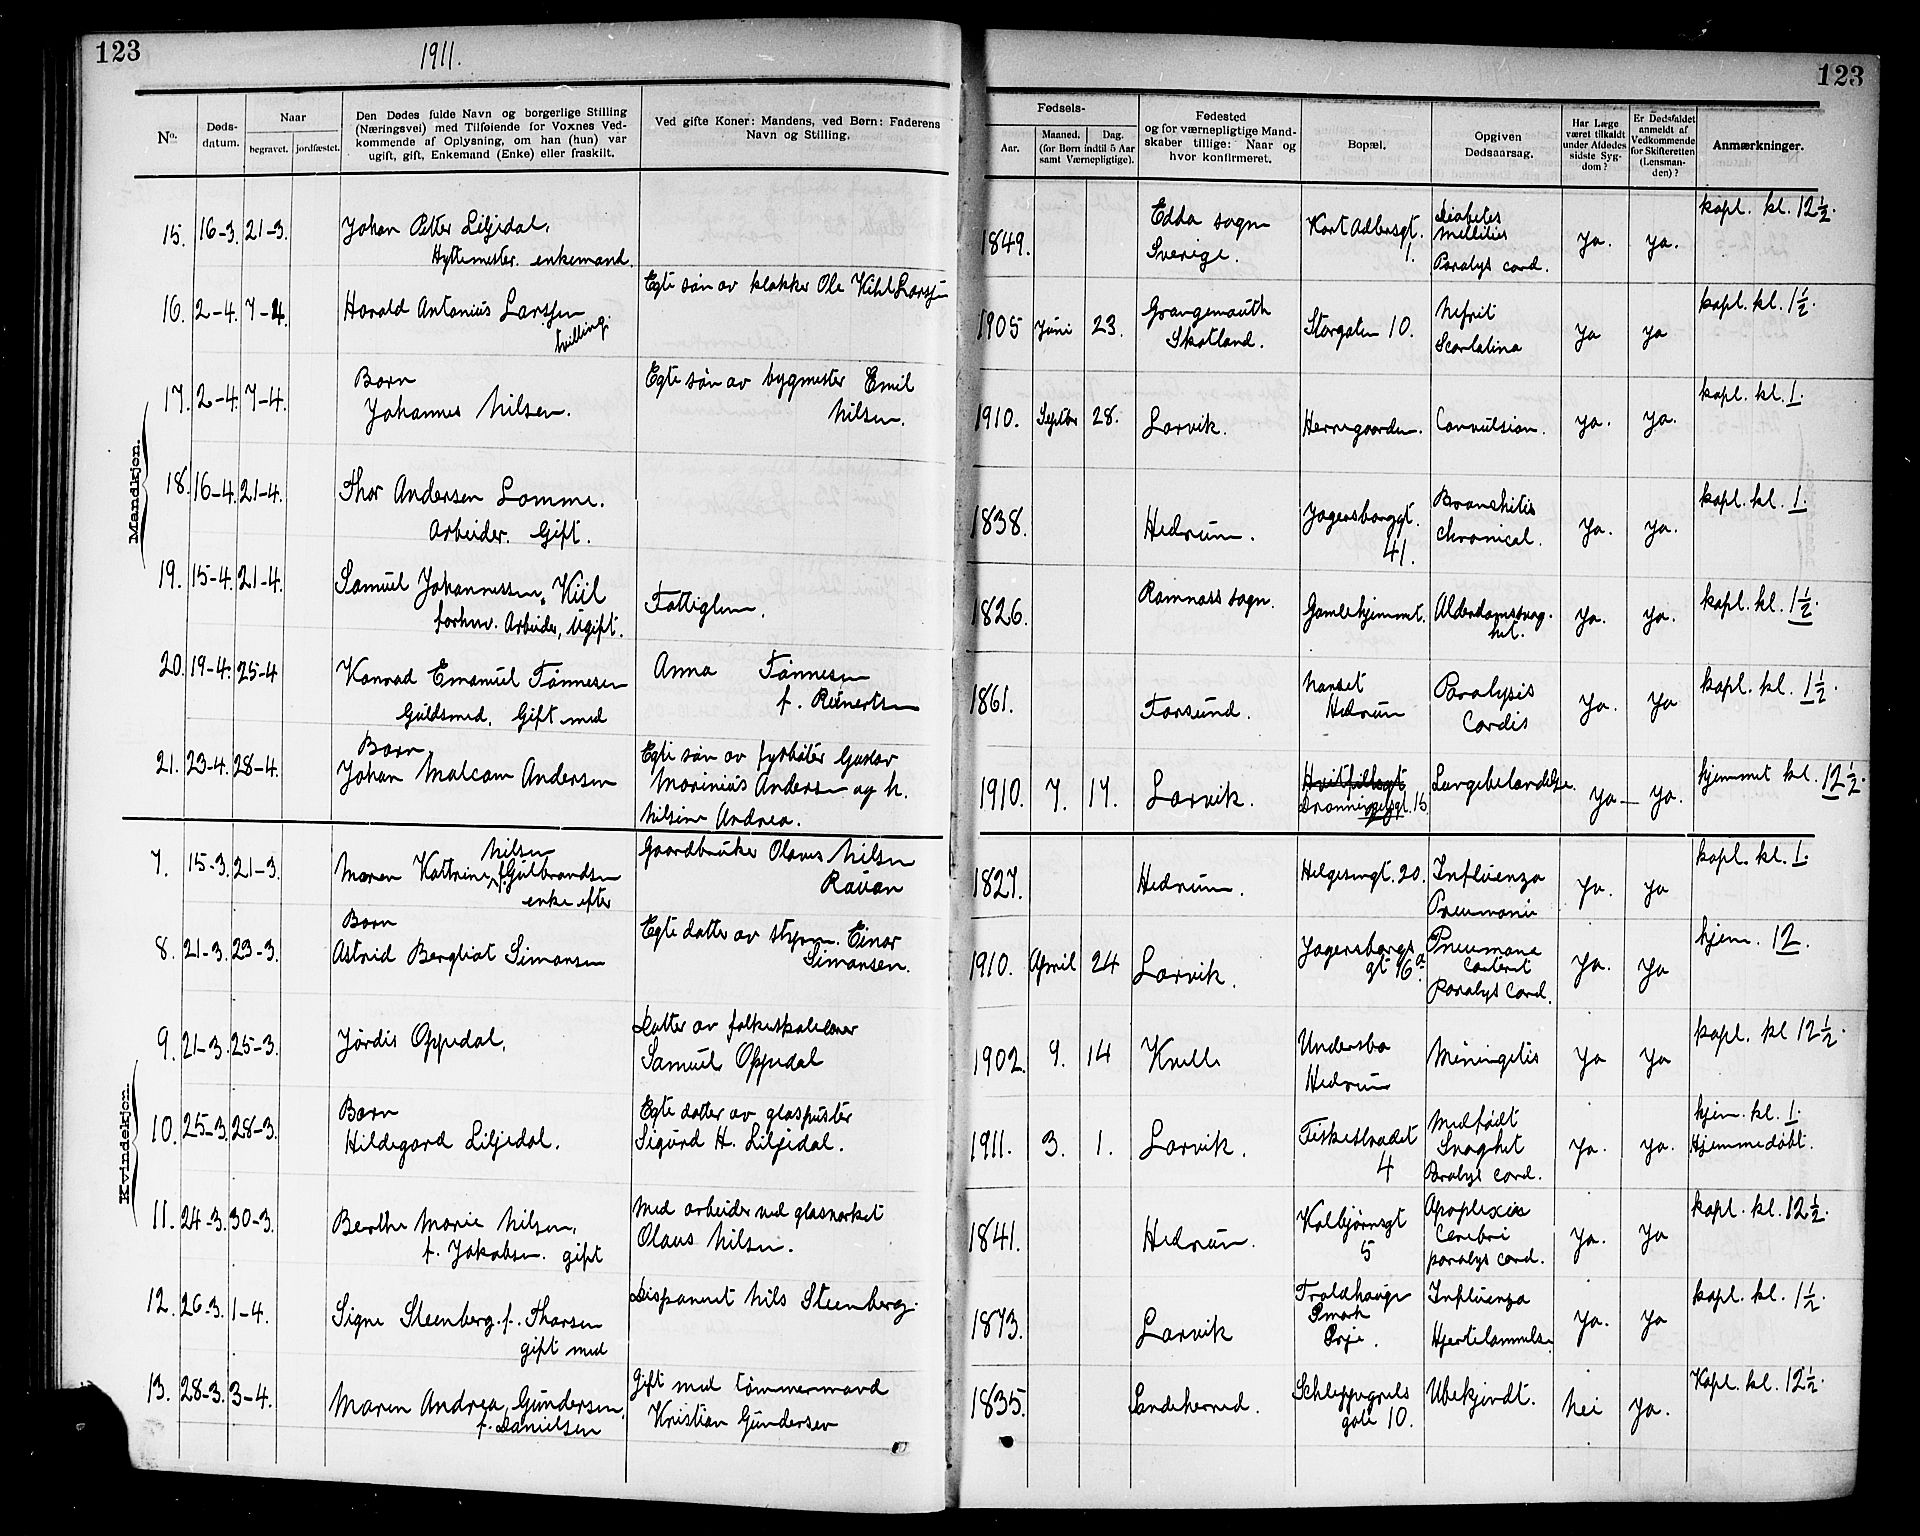 123
1911.
123
No.
Døds-
datum.
Naar
begravet.
jordfæstet.
Den Dødes fulde Navn og borgerlige Stilling
(Næringsvei) med Tilføiende for Voxnes Ved-
kommende af Oplysning, om han (hun) var
ugift, gift, Enkemand (Enke) eller fraskilt.
Ved gifte Koner: Mandens, ved Børn: Faderens
Navn og Stilling.
Fødsels-
Aar.
Maaned. Dag.
(for Børn indtil 5 Aar
samt Værnepligtige).
Fødested
og for værnepligtige Mand-
skaber tillige: Naar og
hvor konfirmeret.
Bopæl.
Opgiven
Dødsaarsag.
Har Læge
været tilkaldt
under Afdødes
sidste Syg-
dom?
Er Dødsfaldet
anmeldt af
Vedkommende
for Skifteretten
(Lensman-
den)?
Anmærkninger.
Mandkjøn.
15. 16-3. 21-3. Johan Petter Liljedal,
Hyttemester. enkemand.
1849. Edda sogn
Sverige.
Kort Adlersgt.
1.
Diabetes
mellities
Paralys cord.
Ja. Ja. kapl. kl. 12½.
16. 2-4. 7-4. Harald Antonius Larssen
tvilling.
Egte søn av klokker Ole Kihl Larssen
1905 Juni 23. Grangemouth
Skotland.
Storgaten 10.
Nefrit
Scarlatina
Ja Ja kapl. kl. 1½.
17. 2-4. 7-4. Barn
Johannes Nilsen.
Egte søn av bygmester Emil
Nilsen.
1910. Septbr 28. Larvik. Herregaarden. Convulsion. Ja. Ja. kapl. kl. 1.
18. 16-4. 21-4. Thor Andersen Lomme.
Arbeider. Gift.
1838. Hedrum. Jegersborggt.
41.
Bronchitis
chronical.
Ja. Ja. kapl. kl. 1
19. 15-4. 21-4. Samuel Johannessen Kiil
forhv. Arbeider, Ugift.
Fattiglem.
1826. Ramnæss sogn. Gamlehjemmet. Alderdomssvag-
het.
Ja. Ja. kapl. kl. 1½.
20. 19-4. 25-4 Konrad Emanuel Tønnesen
Guldsmed, Gift med
Anna Tønnesen
f. Reinertsen
1861. Farsund. Nanset
Hedrum
Paralysis
Cordis
Ja. Ja kapl. kl. 1½.
21. 23-4. 28-4. Barn
Johan Malcom Andersen
Egte søn av fyrbøter Gustav
Marinius Andersen og h.
Nilsine Andrea.
1910. 7. 17. Larvik. Hvitfeltsgt
Dronningensgt. 15
Lungebetændelse. Ja - Ja. hjemmet kl. 12½.
Kvindekjøn.
7. 15-3. 21-3. Maren Kattrine Nilsen f. Gulbrandsen
enke efter
Gaardbruker Olaus Nilsen
Rauan
1827. Hedrum. Helgesensgt. 20. Influenza
Pneumonie
Ja. Ja kapl. kl. 1.
8. 21-3. 23-3. Barn
Astrid Bergliot Simonsen
Egte datter av styrm. Einar
Simonsen.
1910. April 24 Larvik. Jegersborgs
gt 16 a
Pneumone
Paralys Cord.
Ja. Ja hjem. 12.
9. 21-3. 25-3. Jørdis Oppedal.
Datter av folkeskolelærer
Samuel Oppedal
1902. 9. 14 Kvelle Undersbo
Hedrum
Meningetis Ja Ja kapl. kl 12½.
10. 25-3. 28-3. Barn
Hildegard Liljedal.
Egte datter av glaspuster
Sigurd H. Liljedal.
1911. 3. 1. Larvik. Fiskestrædet
4
Medfødt
Svaghet
Paralys cord.
Ja. Ja. hjem. kl. 1.
Hjemmedøbt.
11. 24-3. 30-3. Berthe Marie Nilsen,
f. Jakobsen. gift
Med arbeider ved glasverket
Olaus Nilsen.
1841. Hedrum. Kolbjørnsgt
5
Apoplexia
Cerebri
paralys cord.
Ja. Ja kapl. kl. 12½.
12. 26-3. 1-4. Signe Steenberg. f. Thorsen
gift med
Disponent Nils Steenberg.
1873. Larvik Troldhauge
Influenza
Hjertelammelse
Ja. Ja kapl. kl. 1½.
13. 28-3. 3-4. Maren Andrea Gundersen,
f. Danielsen
Gift med tømmermand
Kristian Gundersen
1835. Sandeherred. Schleppegrels
gate 10.
Ubekjendt. Nei Ja. Kapl. kl. 12½.